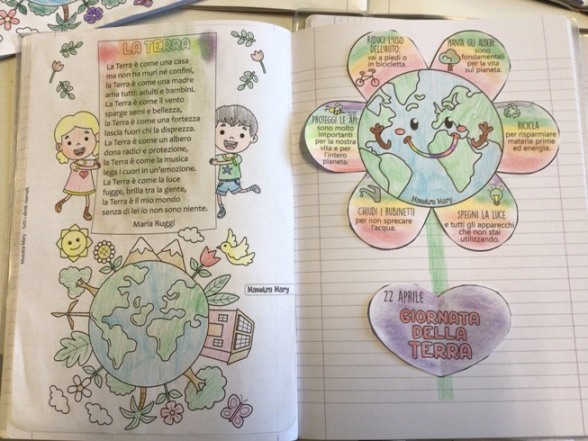 LA TERRA
La Terra è come una casa
ma non ha muri né confini,
la Terra è come una madre
ama tutti adulti e bambini.
La Terra è come il vento
sparge semi e bellezza,
la Terra è come una fortezza
lascia fuori chi la disprezza.
La Terra è come un albero
dona radici e protezione,
la Terra è come la musica
lega i cuori in un'emozione.
La Terra è come la luce
fugge, brilla tra la gente,
la Terra è il mio mondo
senza di lei io non sono niente.
Maria Ruggi
Maestra Mary
RIDUCI L'USO
DELL'AUTO:
vai a piedi o
in bicicletta.
PIANTA GLI ALBERI
sono
fondamentali
per la vita
sul pianeta.
PROTEGGI LE API
sono molto
importanti
per la nostra
vita e per
l'intero
pianeta.
RICICLA
per risparmiare
materie prime
ed energia.
Maestra Mary
CHIUDI I RUBINETTI
per non sprecare
l'acqua.
SPEGNI LA LUCE
e tutti gli apparecchi
che non stai
utilizzando.
22 APRILE
GIORNATA
DELLA
TERRA